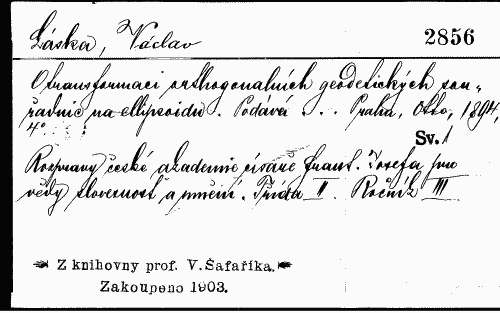 Láska, Václav
2856
O transformaci orthogonalních geodetických sou-
řadnic na ellipsoidu. Podává . . . Praha, Otto, 1894,
4°
Sv. 1
Rozpravy české akademie císaře Frant. Josefa pro
vědy slovesnost a umění. Třída II. Ročník III
Z knihovny prof. V. Šafaříka.
Zakoupeno 1903.